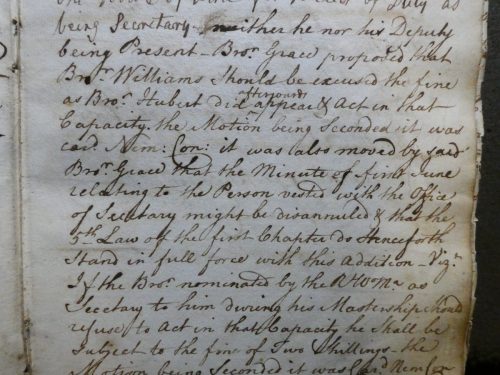 being Secretary - neither he nor his Deputy
being Present - Bror. Grace proposed that
Bror. Williams should be excused the fine
as Bror. Hubert did afterwards appear & Act in that
Capacity. the Motion being Seconded it was
card Nem: Con: it was also moved by said
Bror. Grace that the Minute of first June
relating to the Person vested with the Office
of Secetary might be disannuled & that the
5th Law of the first Chapter do Henceforth
Stand in full force with this Addition - Vizt.
If the Bror. nominated by the RWMr as
Secetary to him during his Mastership should
refuse to Act in that Capacity he Shall be
Subject to the fine of Two Shillings - the
Motion being Seconded it was Card Nem Con